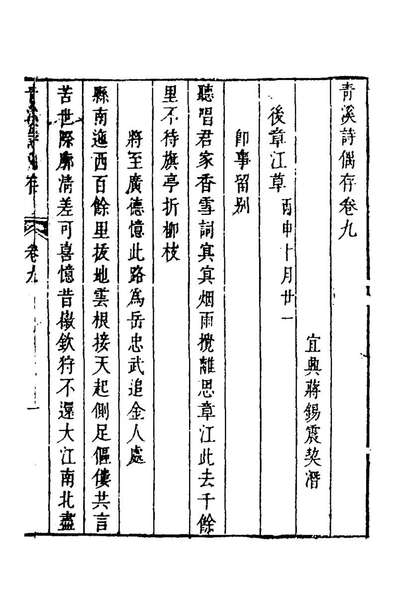 青溪詩偶存卷九
宜興蔣錫震契潛
後章江草 丙申十月廿一
即事留别
聽唱君家香雪詞寘寘烟雨攪離思章江此去千餘
里不待旗亭折柳枝
將至廣德憶此路爲岳忠武追金人處
縣南迤西百餘里拔地雲根接天起側足傴僂共言
苦世際廓清差可喜憶昔徽欽狩不還大江南北盡
青溪詩偶存 卷九 一